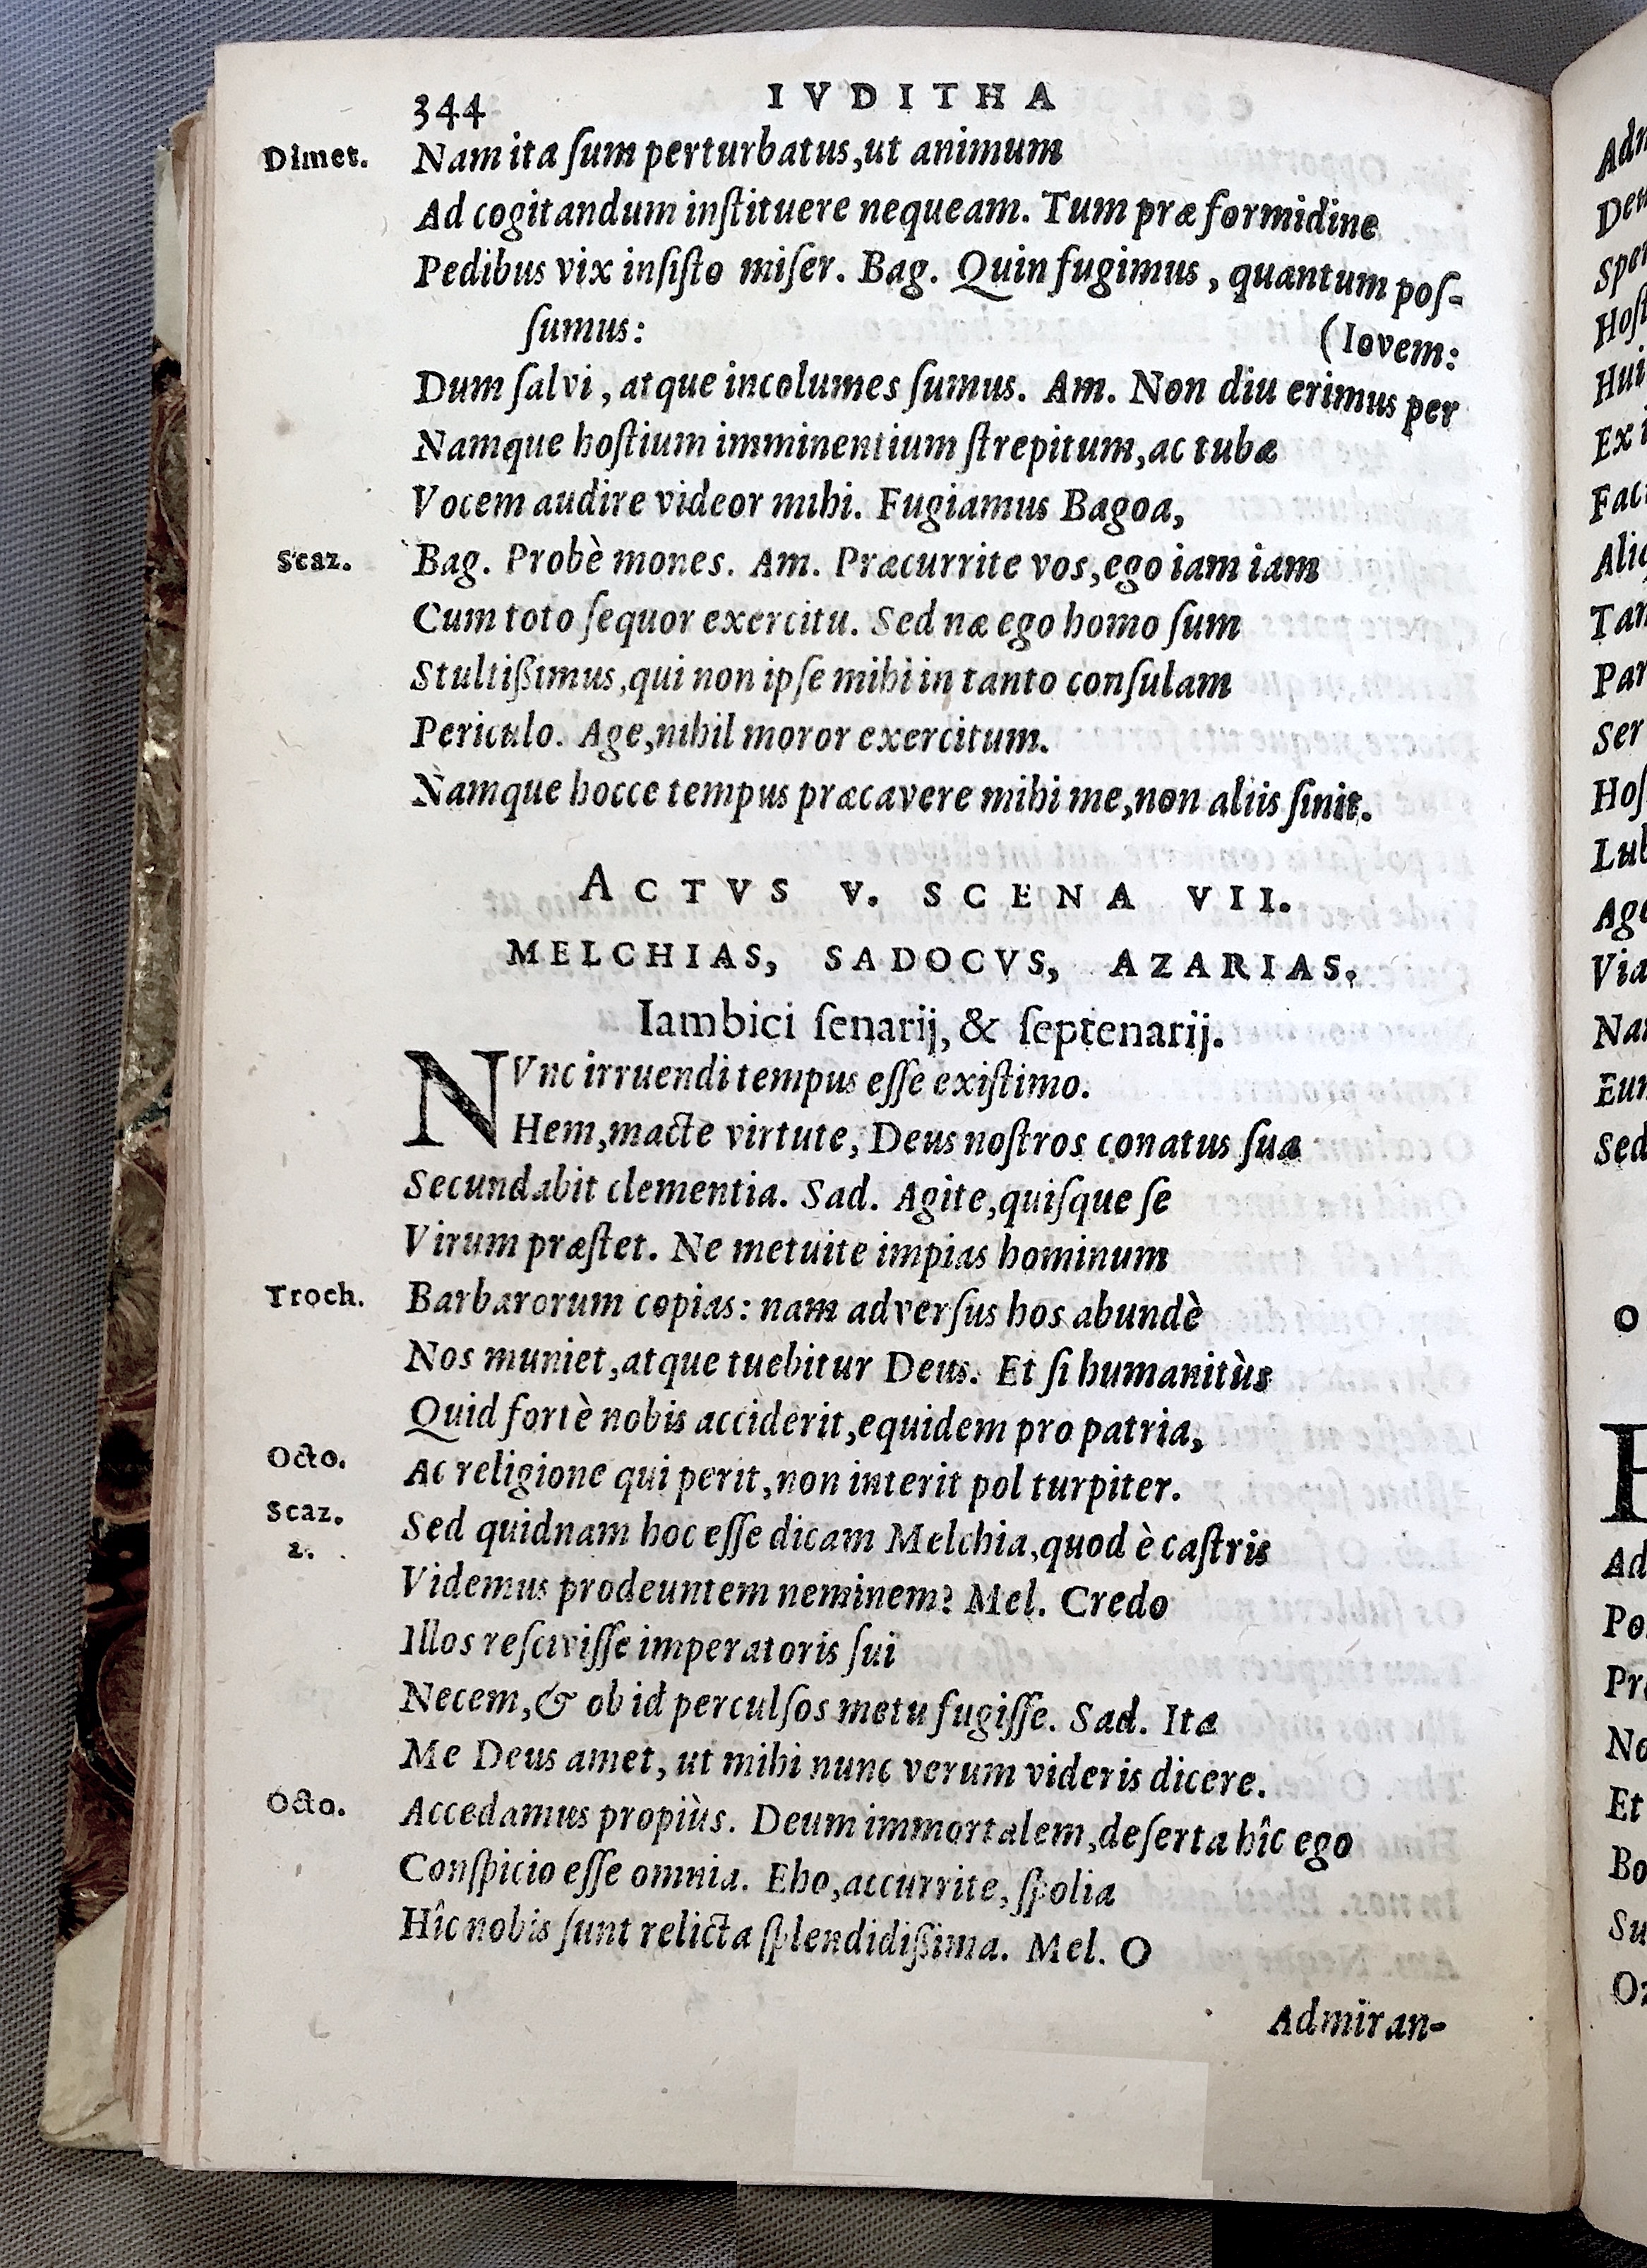 344 IVDITHA
Dimet. Nam ita ſum perturbatus, ut animum
Ad cogitandum inſtituere nequeam. Tum præ formidine
Pedibus vix inſiſto miſer. Bag. Quin fugimus, quantum poſ-
ſumus: (Iovem:
Dum ſalvi, atque incolumes ſumus. Am. Non diu erimus per
Namque hoſtium imminentium ſtrepitum, ac tubæ
Vocem audire videor mihi. Fugiamus Bagoa,
Scaz. Bag. Probè mones. Am. Præcurrite vos, ego iam iam
Cum toto ſequor exercitu. Sed næ ego homo ſum
Stultißimus, qui non ipſe mihi in tanto conſulam
Periculo. Age, nihil moror exercitum.
Namque hocce tempus præcavere mihi me, non aliis ſinit.
ACTVS V. SCENA VII.
MELCHIAS, SADOCVS, AZARIAS.
Iambici ſenarij, & ſeptenarij.
NVnc irruendi tempus eſſe exiſtimo.
Hem, macte virtute, Deus noſtros conatus ſua
Secundabit clementia. Sad. Agite, quiſque ſe
Virum præſtet. Ne metuite impias hominum
Troch. Barbarorum copias: nam adverſus hos abundè
Nos muniet, atque tuebitur Deus. Et ſi humanitùs
Quid fortè nobis acciderit, equidem pro patria,
Octo. Ac religione qui perit, non interit pol turpiter.
Scaz. Sed quidnam hoc eſſe dicam Melchia, quod è caſtris
2. Videmus prodeuntem neminem? Mel. Credo
Illos reſciviſſe imperatoris ſui
Necem, & ob id perculſos metu fugiſſe. Sad. Ita
Me Deus amet, ut mihi nunc verum videris dicere.
Octo. Accedamus propiùs. Deum immortalem, deſerta hîc ego
Conſpicio eſſe omnia. Eho, accurrite, ſpolia
Hîc nobis ſunt relicta ſplendidißima. Mel. O
Admiran-